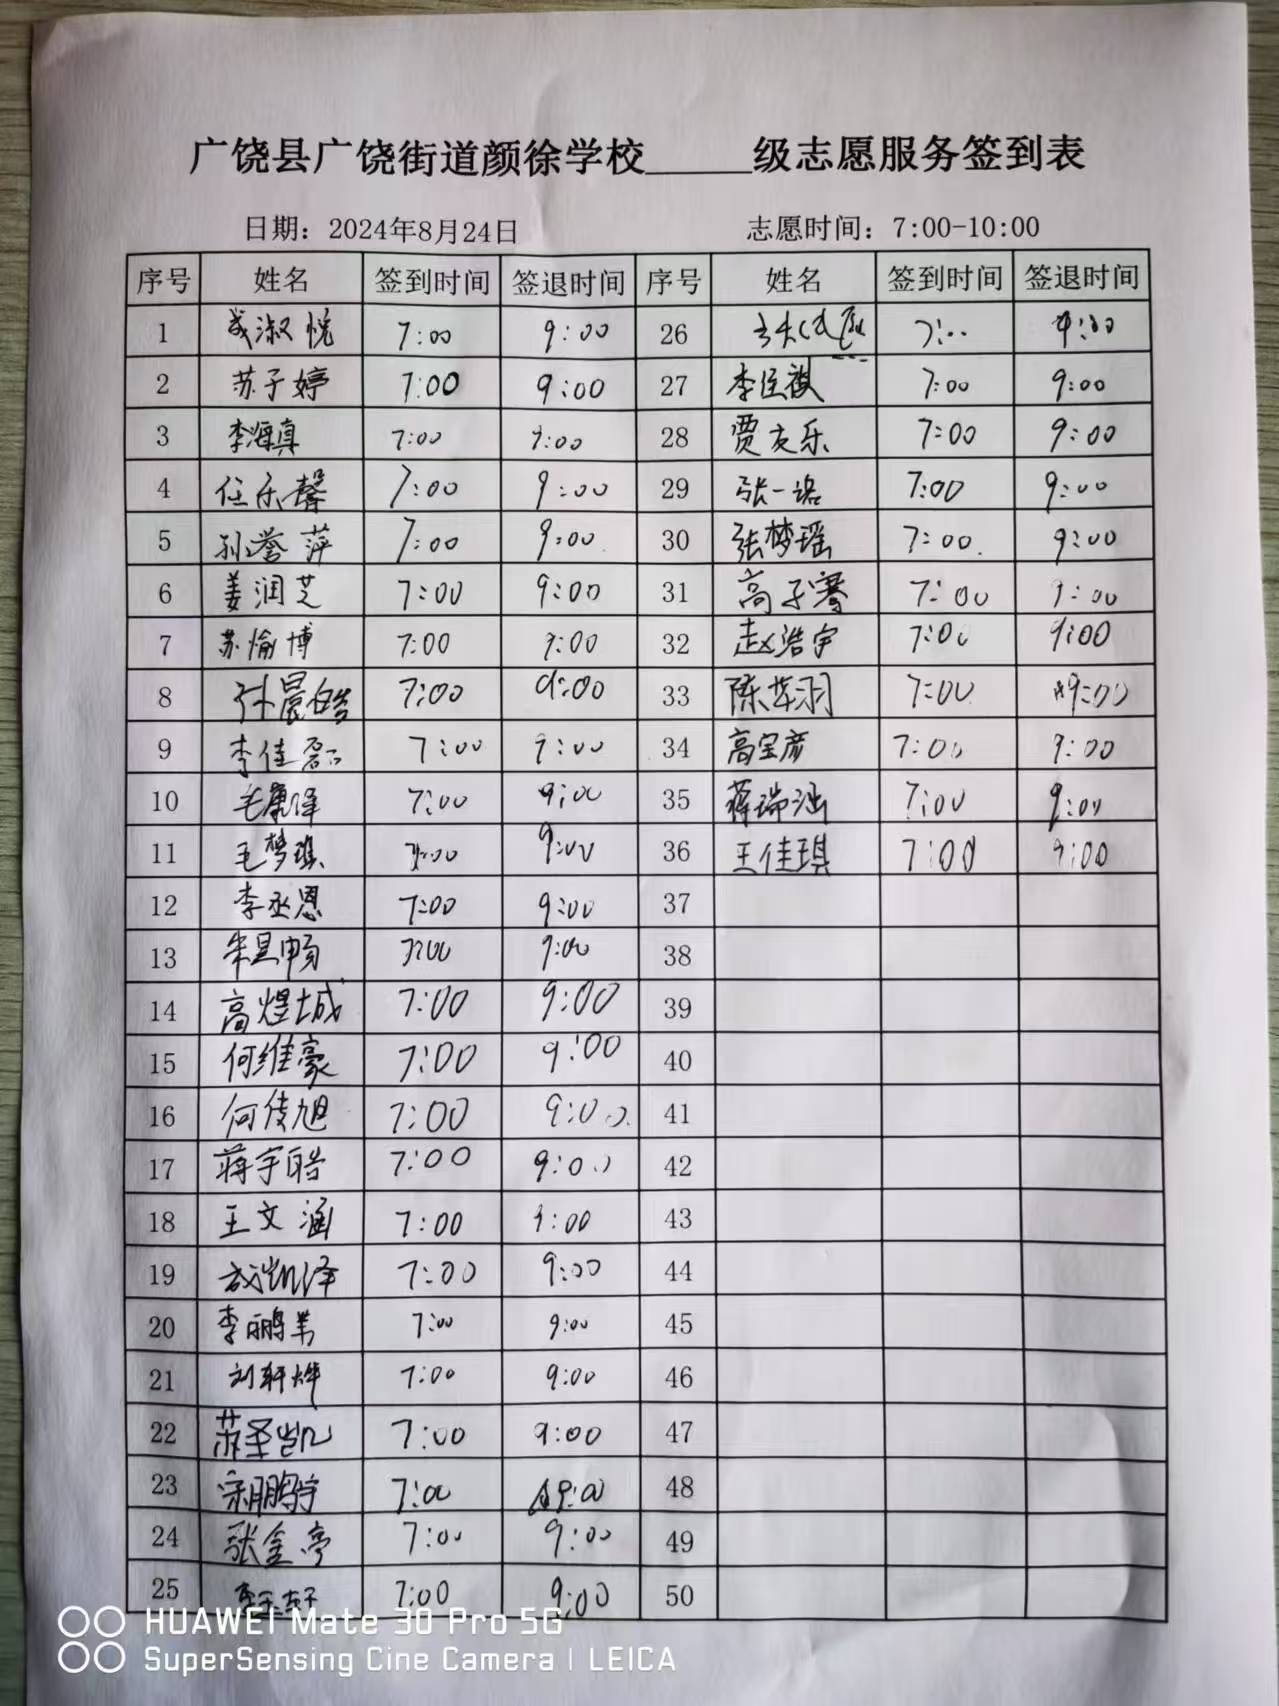 广饶县广饶街道颜徐学校______级志愿服务签到表
日期：2024年8月24日 志愿时间：7:00-10:00
序号 姓名 签到时间 签退时间 序号 姓名 签到时间 签退时间
1 成淑悦 7:00 9:00 26 7:00 9:00
2 苏子婷 7:00 9:00 27 李臣祺 7:00 9:00
3 李海真 7:00 9:00 28 贾友乐 7:00 9:00
4 任乐馨 7:00 9:00 29 张一诺 7:00 9:00
5 孙誉萍 7:00 9:00 30 张梦瑶 7:00 9:00
6 姜润芝 7:00 9:00 31 高子骞 7:00 9:00
7 苏愉博 7:00 9:00 32 赵浩宇 7:00 9:00
8 孙晨皓 7:00 9:00 33 陈苹羽 7:00 9:00
9 李佳磊 7:00 9:00 34 高宝彦 7:00 9:00
10 毛康泽 7:00 9:00 35 蒋瑞涵 7:00 9:00
11 毛梦琪 7:00 9:00 36 王佳琪 7:00 9:00
12 李丞恩 7:00 9:00 37
13 朱昱畅 7:00 9:00 38
14 高煜城 7:00 9:00 39
15 何维豪 7:00 9:00 40
16 何俊旭 7:00 9:00 41
17 蒋宇皓 7:00 9:00 42
18 王文涵 7:00 9:00 43
19 成凯泽 7:00 9:00 44
20 李鹏 7:00 9:00 45
21 刘轩烨 7:00 9:00 46
22 苏圣凯 7:00 9:00 47
23 宋鹏宇 7:00 9:00 48
24 张金亭 7:00 9:00 49
25 7:00 9:00 50
HUAWEI Mate 30 Pro 5G
SuperSensing Cine Camera | LEICA